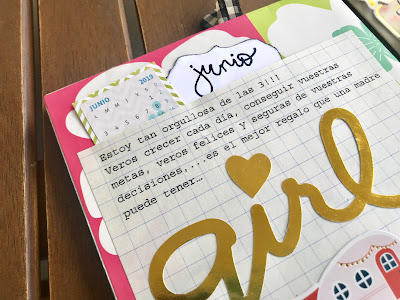 junio
JUNIO 2019
Estoy tan orgullosa de las 3!!!
Veros crecer cada día, conseguir vuestras
metas, veros felices y seguras de vuestras
decisiones,...es el mejor regalo que una madre
puede tener…
girl